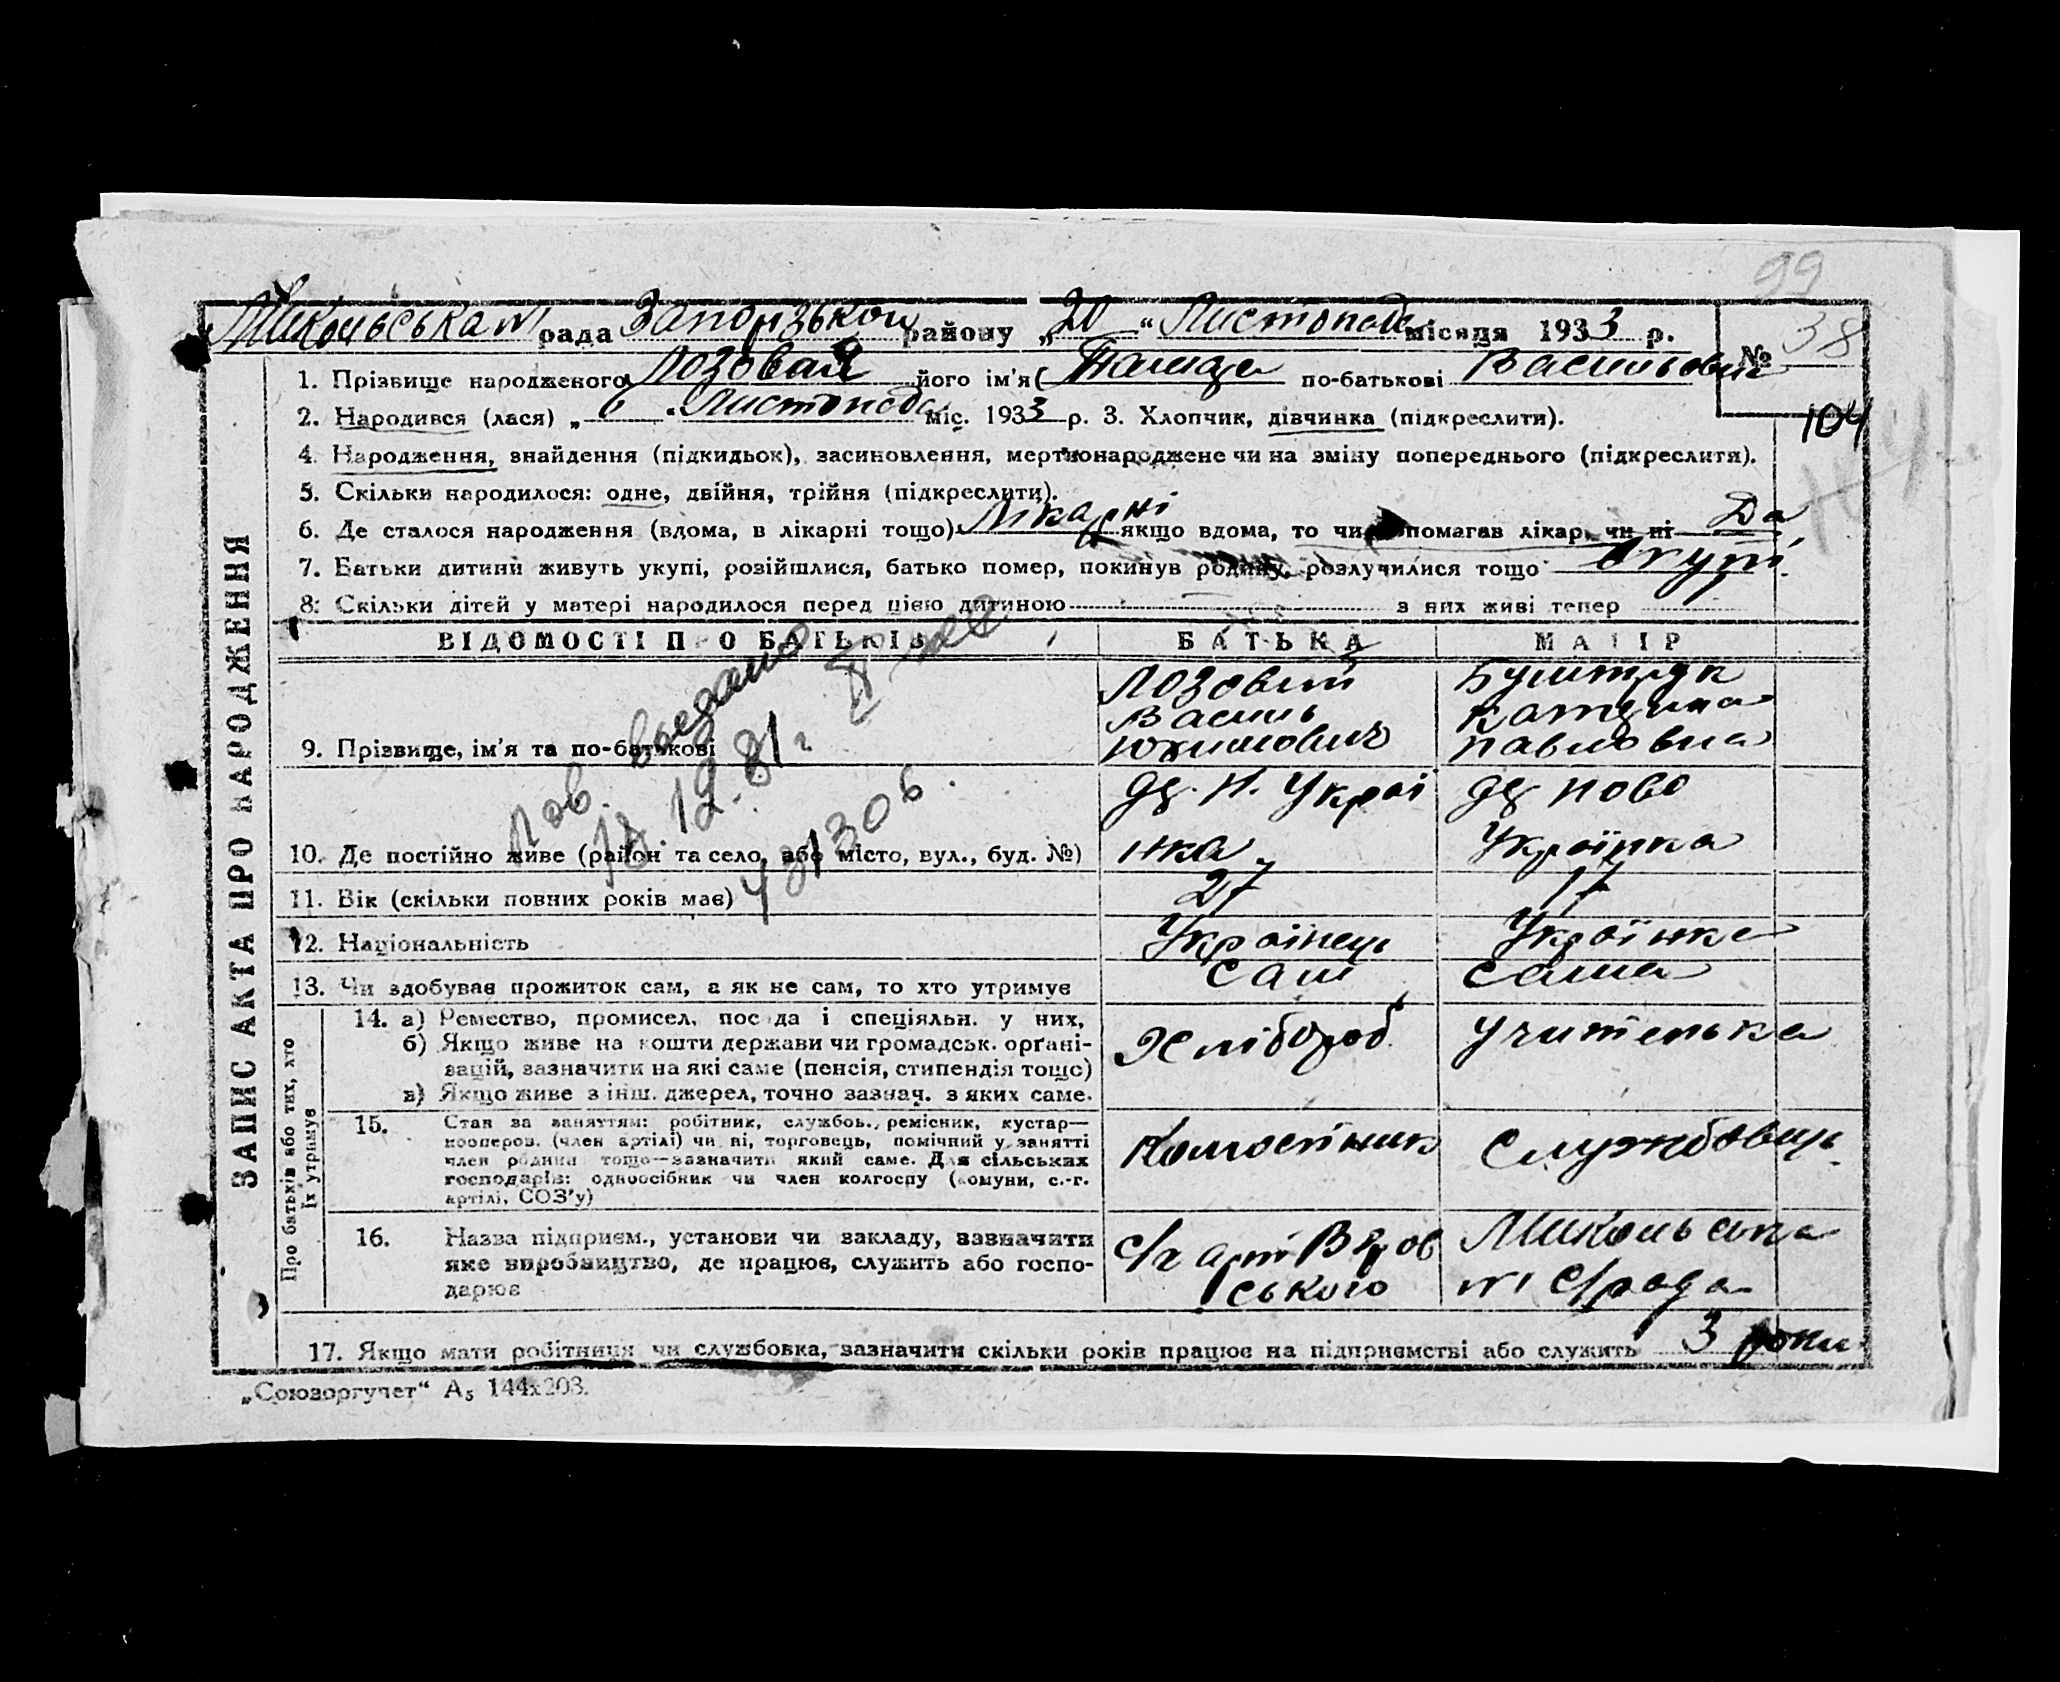 99
Микольська рада Запорзькои району „20“ Листопада місяця 1933 р.
№ 38
1. Прізвище народженого Лозовая його ім'я по-батькові Васильовн
2. Народився (лася) „6“ Листопада міс. 1933 р. 3. Хлопчик, дівчинка (підкреслити).
104
4. Народження, знайдення (підкидьок), засиновлення, мертвонароджене чи на зміну попереднього (підкреслити).
5. Скільки народилося: одне, двійня, трійня (підкреслити).
6. Де сталося народження (вдома, в лікарні тощо) Лікарні якщо вдома, то чи допомагав лікар, чи ні Да
7. Батьки дитини живуть укупі, розійшлися, батько помер, покинув родину, розлучилися тощо Вкупі
8. Скільки дітей у матері народилося перед цією дитиною з них живі тепер
ЗАПИС АКТА ПРО НАРОДЖЕННЯ
ВІДОМОСТІ ПРО БАТЬКІВ БАТЬКА МАТІР
Пов. выдано
18.12.81 г.
431306.
9. Прізвище, ім'я та по-батькові Лозовий Василь Юхимович
Катерина Павловна
10. Де постійно живе (район та село, або місто, вул., буд. №) Н. Украінка
Ново Українка
11. Вік (скільки повних років має) 27 17
12. Національність Українець Українка
13. Чи здобуває прожиток сам, а як не сам, то хто утримує сам сама
Про батьків або тих, хто їх утримує
14. а) Ремество, промисел, посада і спеціяльн. у них,
б) Якщо живе на кошти держави чи громадськ. орґані-
зацій, зазначити на які саме (пенсія, стипендія тощо)
в) Якщо живе з інш. джерел, точно зазнач. з яких саме.
Хлібороб Учителька
15. Стан за заняттям: робітник, службов., ремісник, кустар—
кооперов. (член артілі) чи ні, торговець, помічний у занятті
член родини тощо—зазначити який саме. Для сільських
господарів: одноосібник чи член колгоспу (комуни, с.-г.
артілі, СОЗ'у)
Колгоспник Службовиць
16. Назва підприєм., установи чи закладу, зазначити
яке виробництво, де працює, служить або госпо-
дарює
с/г арт ського
Микольська с/рада
17. Якщо мати робітниця чи службовка, зазначити скільки років працює на підприємстві або служить 3 роки
„Союзоргучет“ А5 144х203.